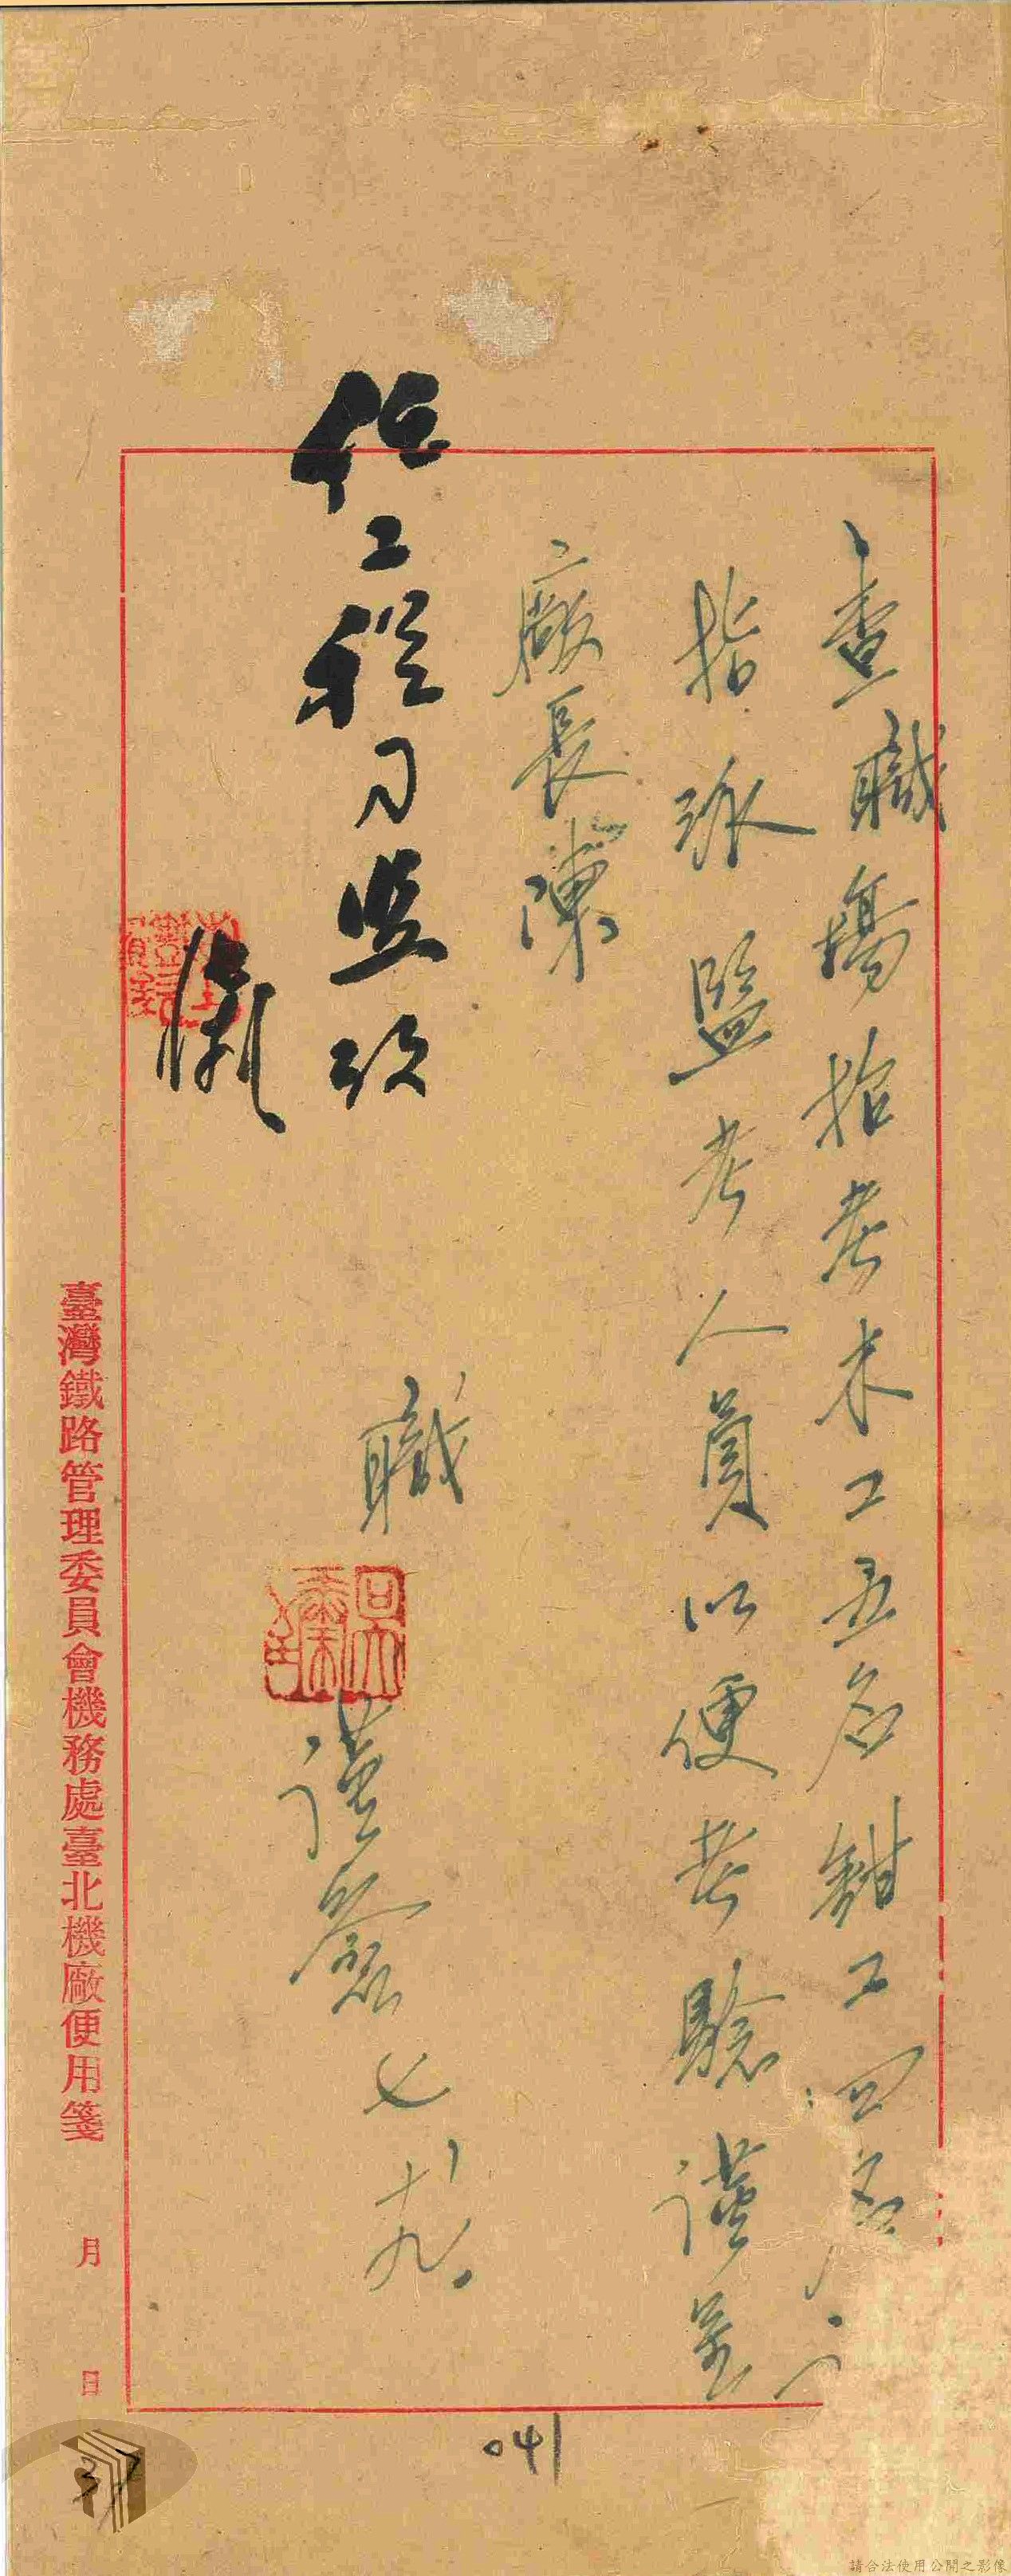 查職場招考木工五名鉗工四名
指派監考人員以便考驗謹呈
廠長陳
任工程司監攷
職
謹簽 七、十九.
臺灣鐵路管理委員會機務處臺北機廠便用箋 月 日
041
37
請合法使用公開之影像